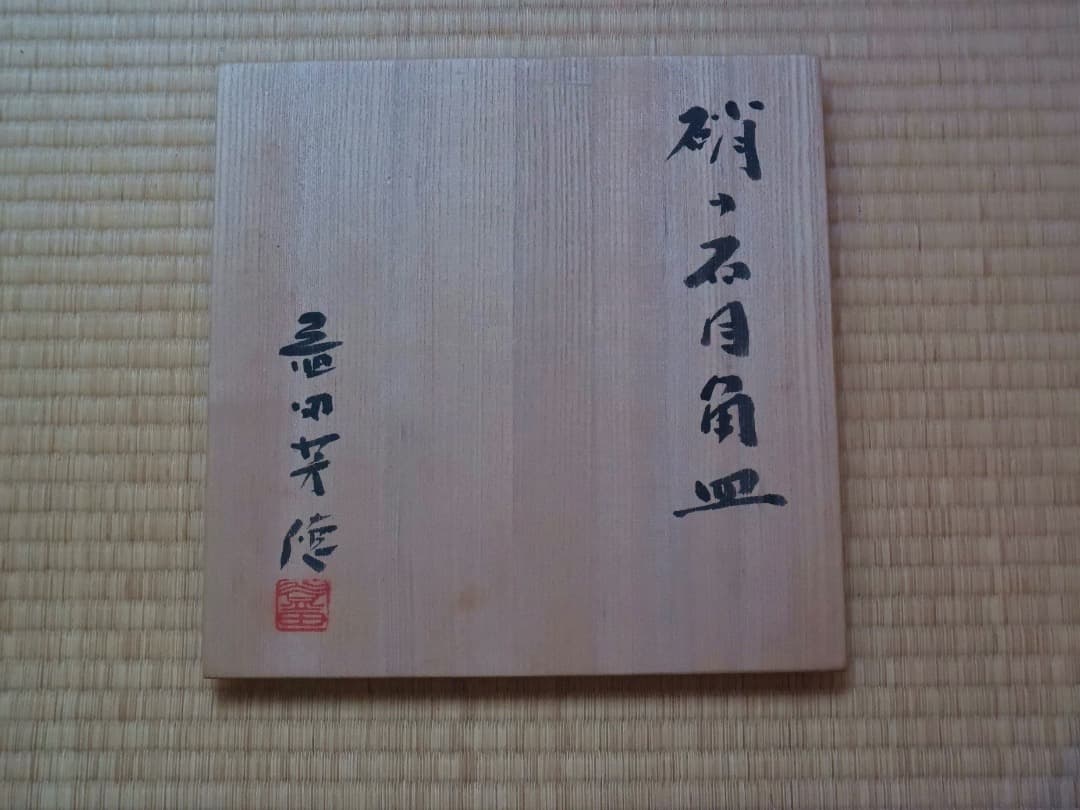 硝子石目角皿
益田芳徳